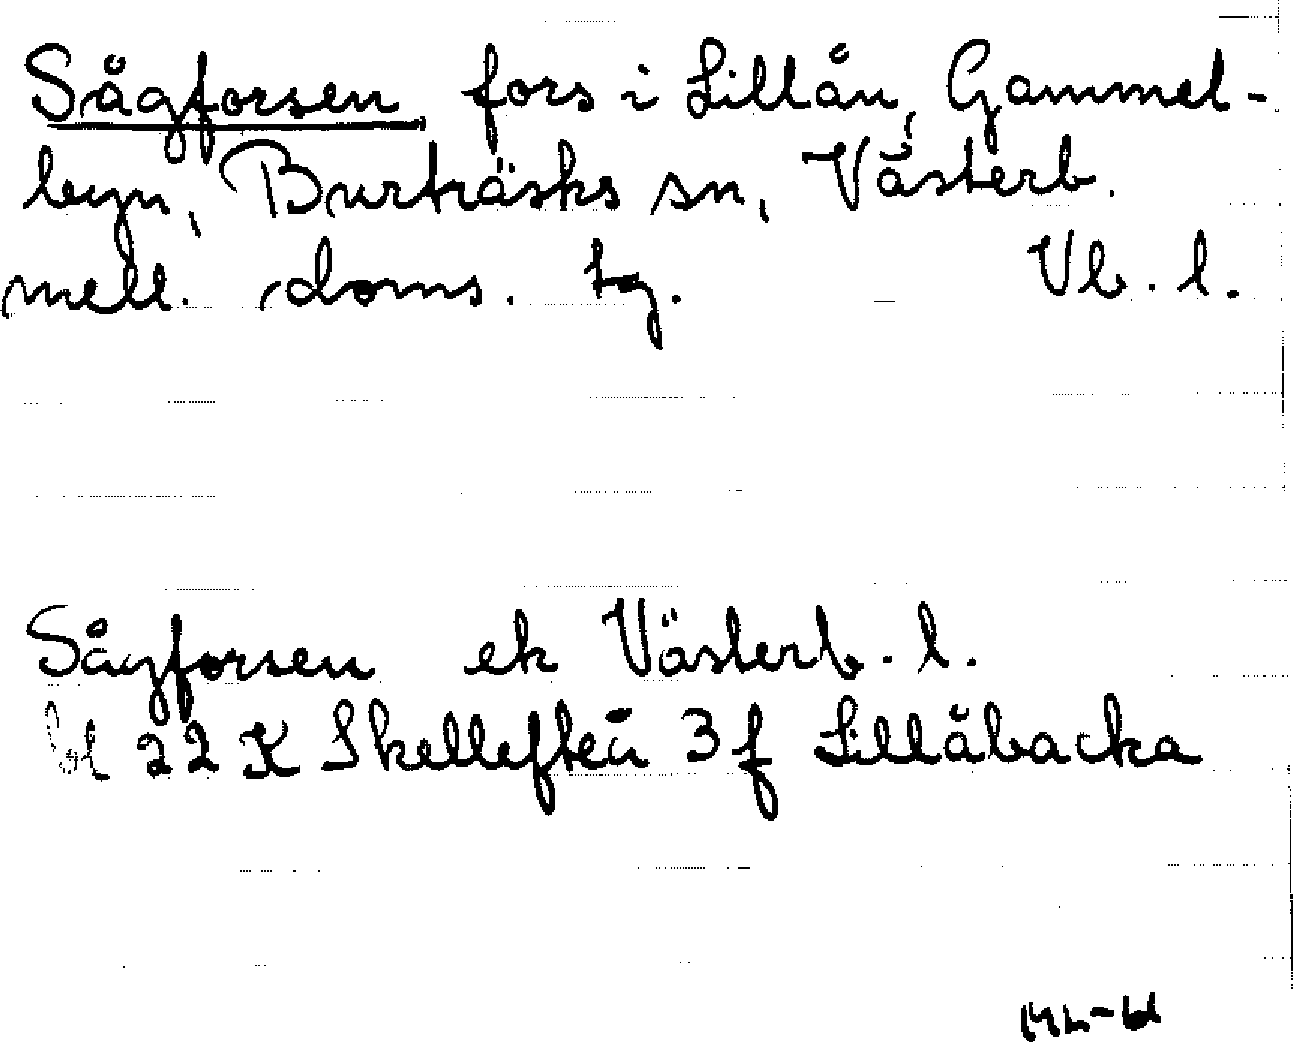 Sågforsen, fors i Lillån, Gammel-
byn, Burträsks sn, Västerb.
mell. doms. tg. Vb. l.
Sågforsen ek Västerb. l.
bl 22 K Skellefteå 3 f Lillåbacka